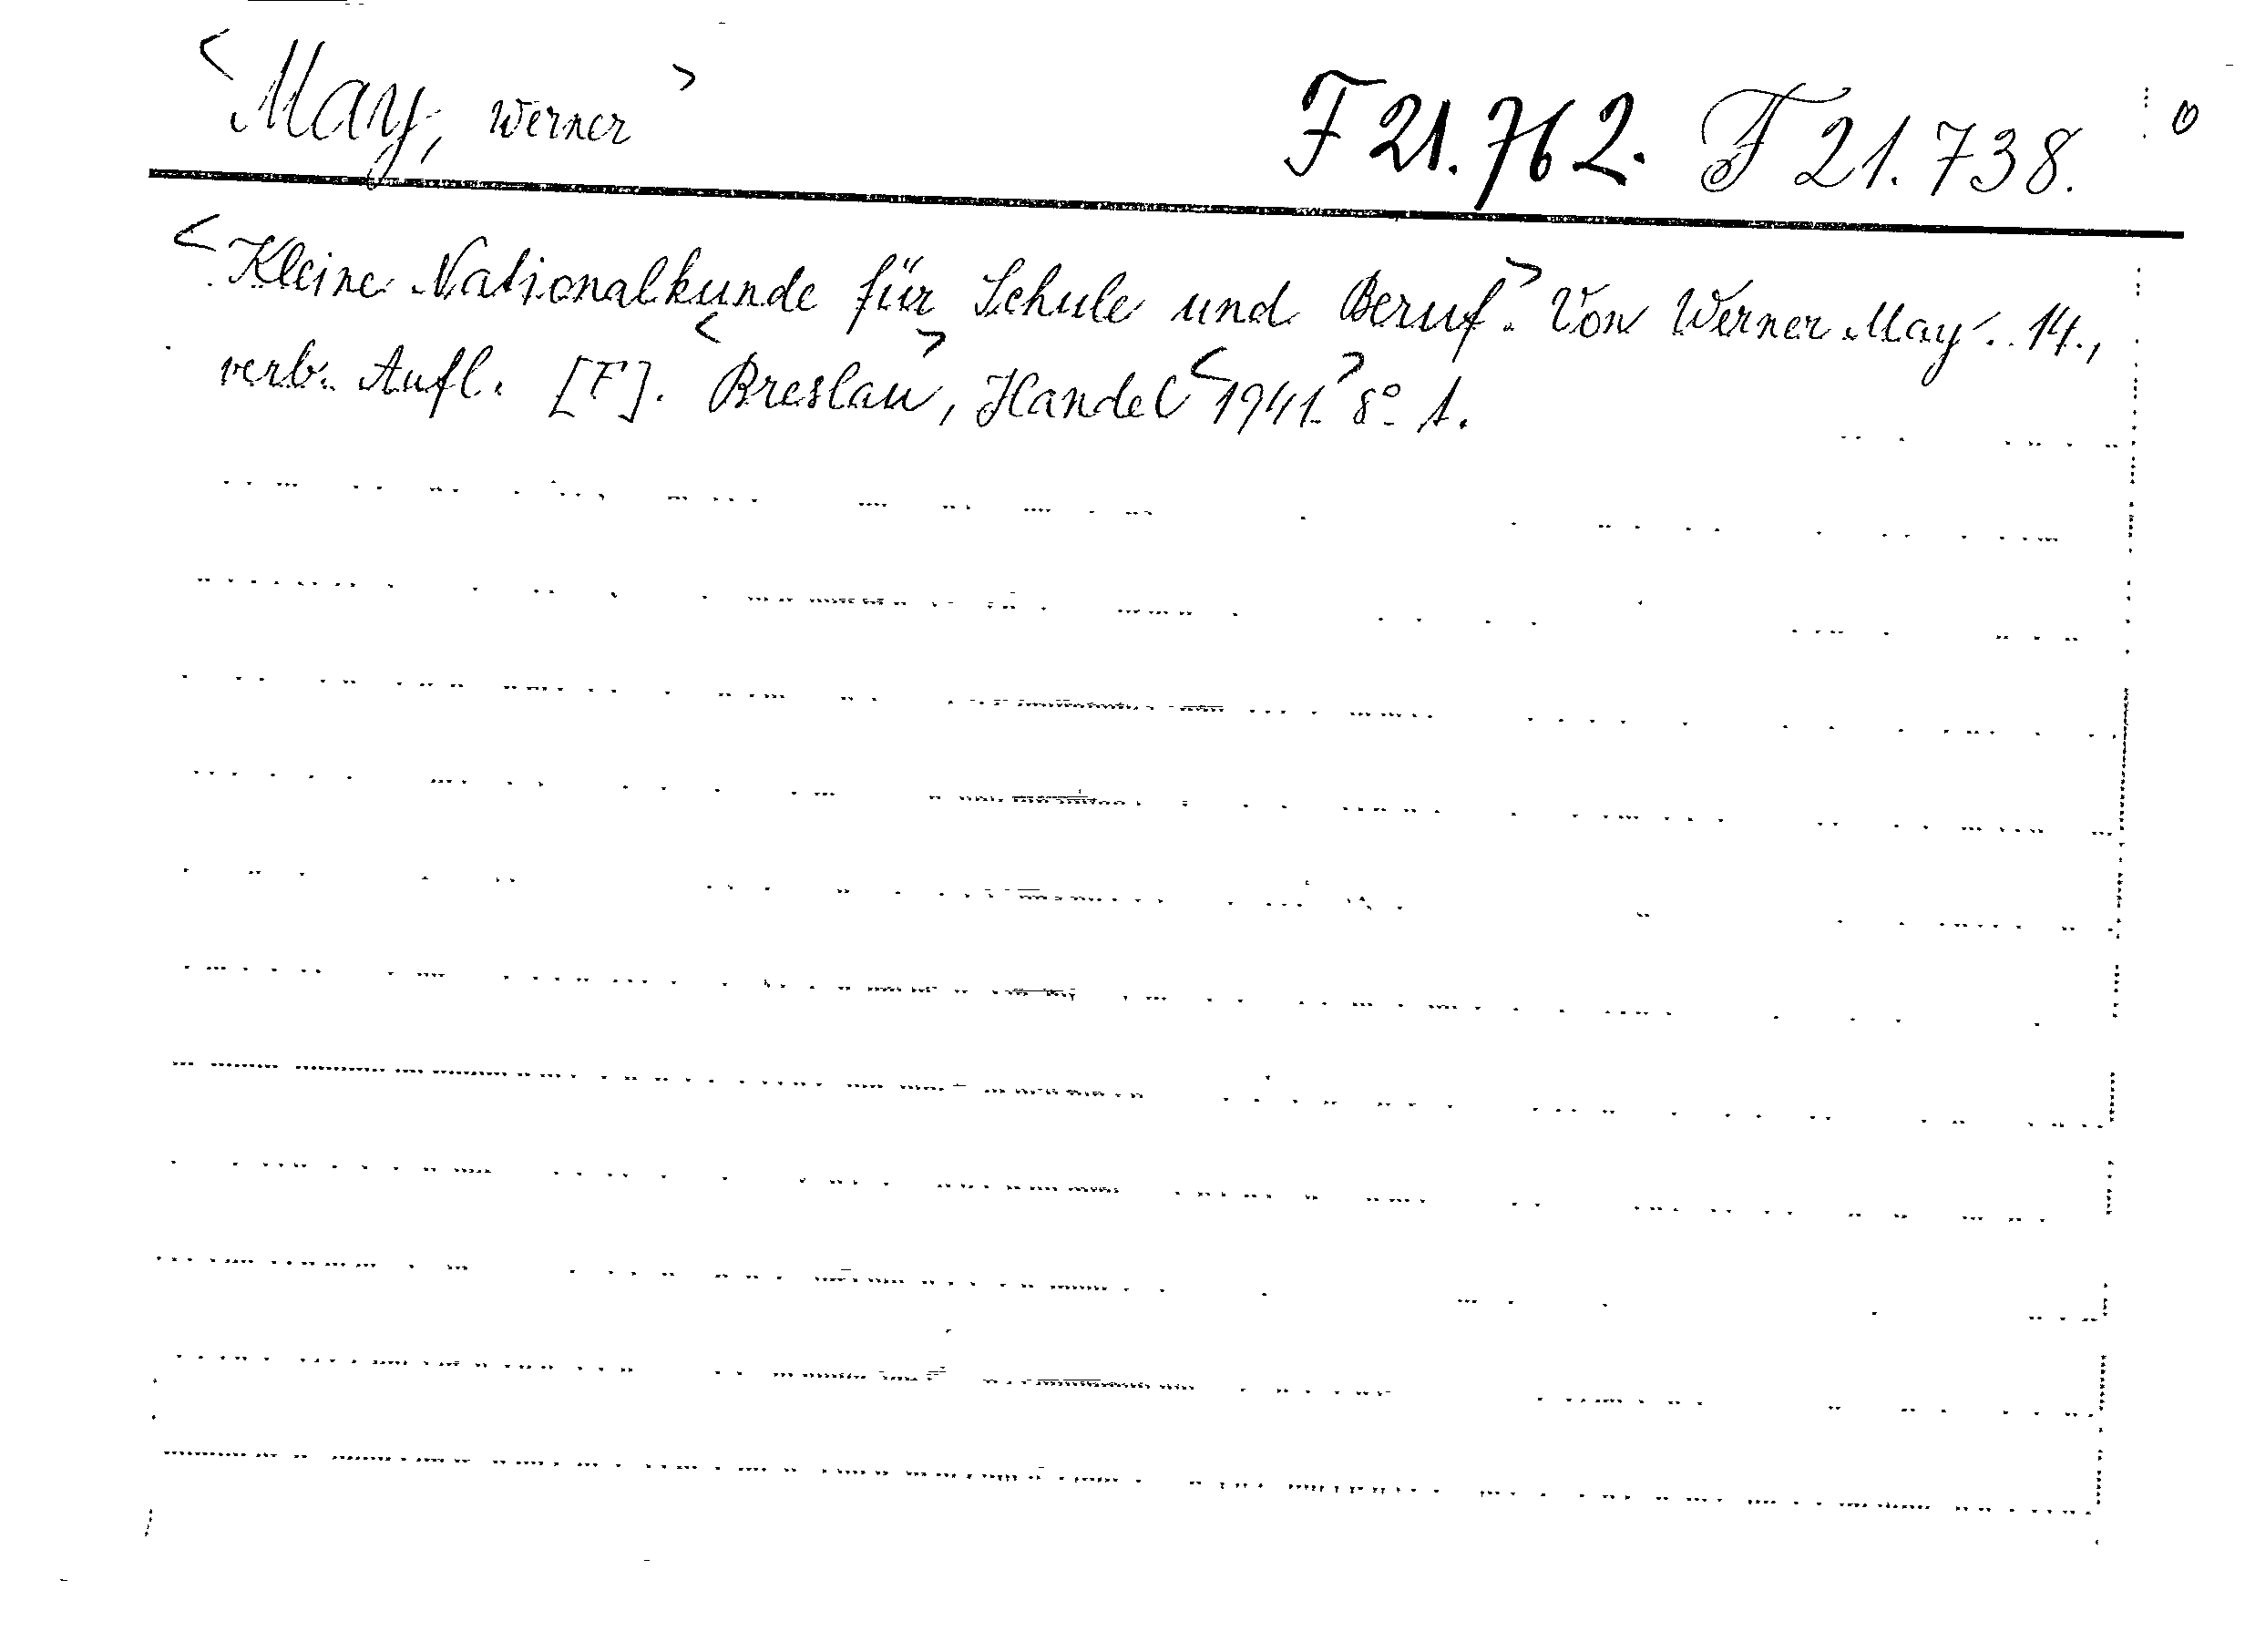 <May, Werner> F 21.762. F 21.738.
<Kleine Nationalkunde für Schule und Beruf.> Von Werner May. 14.,
verb. Aufl. [F]. <Breslau>, Handel <1941.> 8° 1.